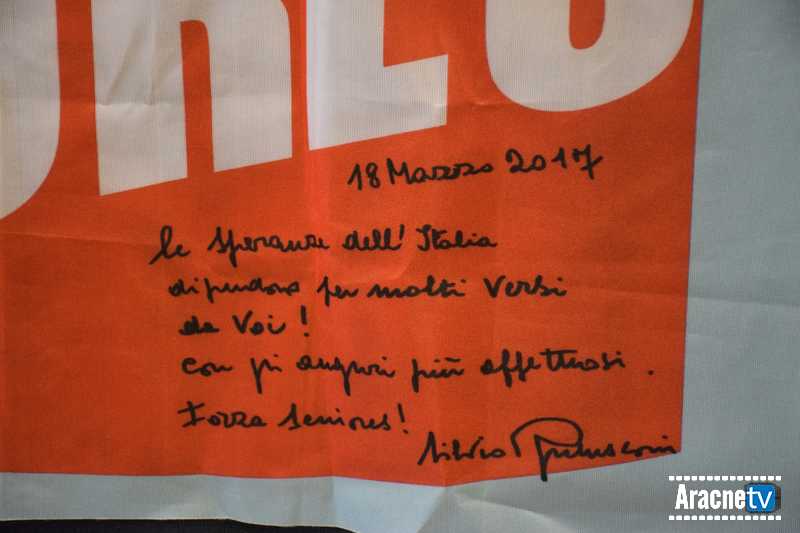 18 Marzo 2017
le speranze dell'Italia
dipendono per molti versi
da Voi!
con gli auguri più affettuosi.
Forza Seniores!
Silvio Berlusconi
Aracnetv